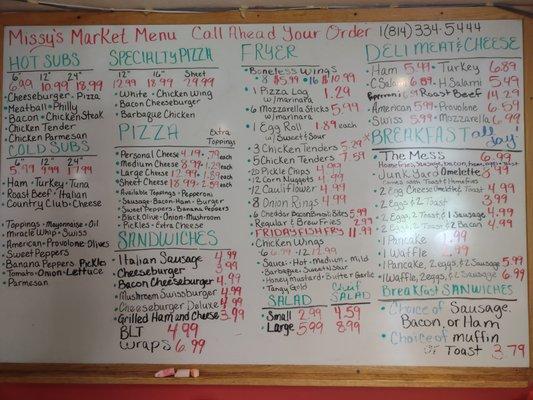 Missy's Market Menu Call Ahead Your Order 1(814)334-5444
HOT SUBS
6" 12" 24"
6.99 10.99 18.99
Cheeseburger · Pizza
Meatball · Philly
Bacon · Chicken Steak
Chicken Tender
Chicken Parmesan
COLD SUBS
6" 12" 24"
5.99 9.99 17.99
Ham · Turkey · Tuna
Roast Beef · Italian
Country Club · Cheese
Toppings · Mayonnaise · Oil
Miracle Whip · Swiss
American · Provolone · Olives
Sweet Peppers
Banana Peppers Pickles
Tomato · Onion · Lettuce
Parmesan
SPECIALTY PIZZA
12" 16" Sheet
12.99 18.99 29.99
White · Chicken Wing
Bacon Cheeseburger
Barbaque Chicken
PIZZA Extra Toppings
Personal Cheese 4.19 .79 each
Medium Cheese 8.99 1.29 each
Large Cheese 12.99 each
Sheet Cheese 18.99 2.59 each
Available Toppings · Pepperoni
Sausage · Bacon · Ham · Burger
Sweet Peppers · Banana Peppers
Black Olive · Onion · Mushroom
Pickles · Extra Cheese
SANDWICHES
Italian Sausage 4.99
Cheeseburger 3.99
Bacon Cheeseburger 4.99
Mushroom Swissburger 4.99
Cheeseburger Deluxe 4.99
Grilled Ham and Cheese 3.99
BLT 4.99
Wraps 6.99
FRYER
Boneless Wings
8 $5.99 16 $10.99
1 Pizza Log 1.29
w/marinara
6 Mozzarella Sticks 5.99
w/marinara
1 Egg Roll 1.89 each
w/Sweet & Sour
3 Chicken Tenders 5.29
5 Chicken Tenders 7.59
20 Pickle Chips
12 Corn Nuggets 4.99
12 Cauliflower 4.99
8 Onion Rings 4.99
6 Cheddar Bacon Bites 5.99
Regular & Brew Fries 2.99
FRIDAY FISH FRY 11.99
Chicken Wings
6 6.99 12 12.99
Sauce · Hot · Medium · Mild
Barbaque · Sweet N Sour
Honey Mustard · Butter Garlic
Tangy Gold
SALAD Chef SALAD
Small 2.99 4.59
Large 5.99 8.99
DELI MEAT & CHEESE
Ham 5.49 Turkey 6.89
C Salami H Salami 5.49
Roast Beef 11.29
American 5.99 Provolone 6.59
Swiss 5.99 Mozzarella 6.99
BREAKFAST all day
The Mess 6.99
Home fries, Sausage, bacon, ham
Junk Yard Omelette 8.99
2 Egg Cheese Omelette Toast 4.99
2 Eggs & 2 Toast 3.99
2 Eggs, 2 Toast & 1 Sausage 4.99
2 Eggs, 2 Toast & 2 Bacon 4.99
1 Pancake 1.99
1 Waffle
1 Pancake, 2 eggs, & 2 Sausage 5.99
1 Waffle, 2 eggs, & 2 Sausage 6.99
Breakfast SANDWICHES
Choice of Sausage,
Bacon, or Ham
Choice of muffin
or Toast 3.79